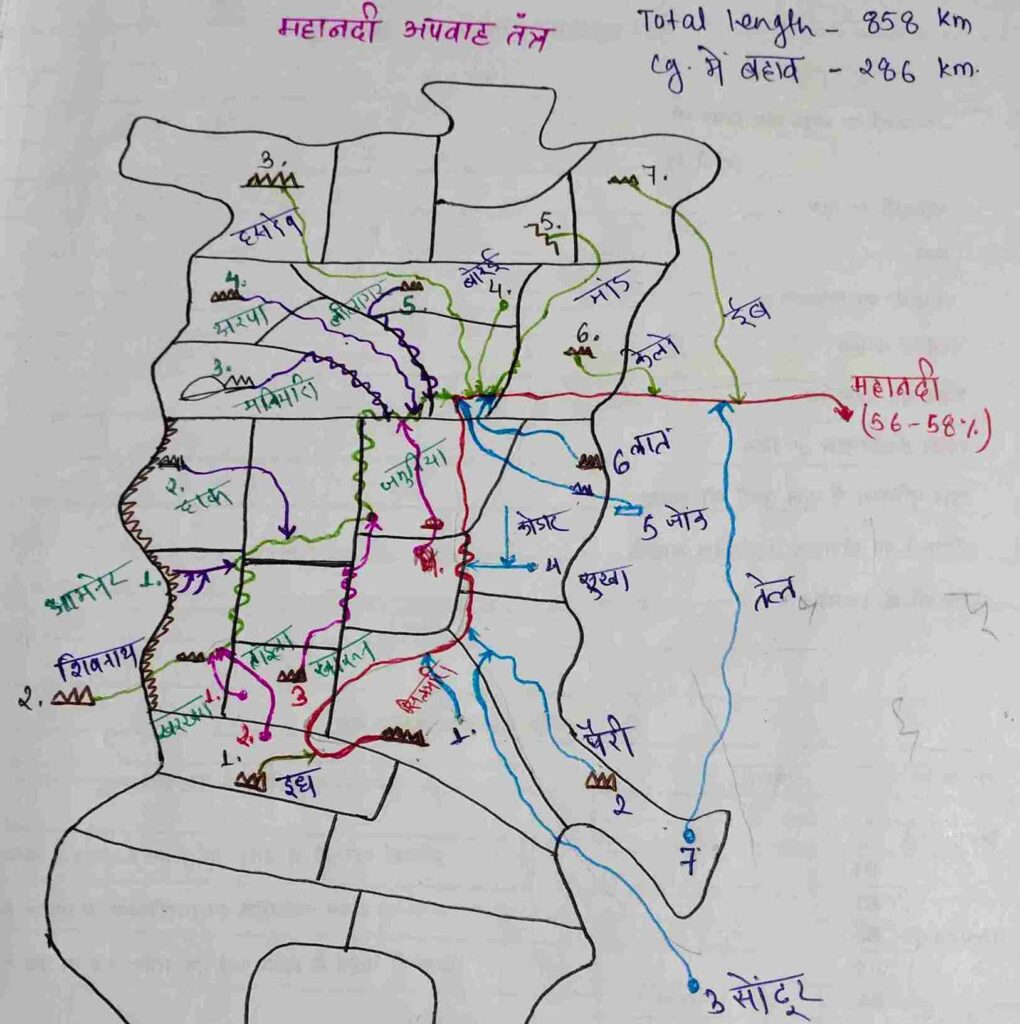 महानदी अपवाह तंत्र
Total length - 858 km
Cg. में बहाव - 286 km.
3.
7.
हसदेव
5.
बोरई
4.
मांड
4.
अरपा
लीलागर
5.
ईब
6.
केलो
3.
मनियारी
महानदी
(56-58%)
जमुनिया
6 लात
2.
हाफ
5 जोंक
कोडार
4
सुखा
आमनेर
1.
तेल
शिवनाथ
2.
3
खारून
1.
2.
सिलयारी
1.
पैरी
2
1.
दूध
7
3 सोंढूर